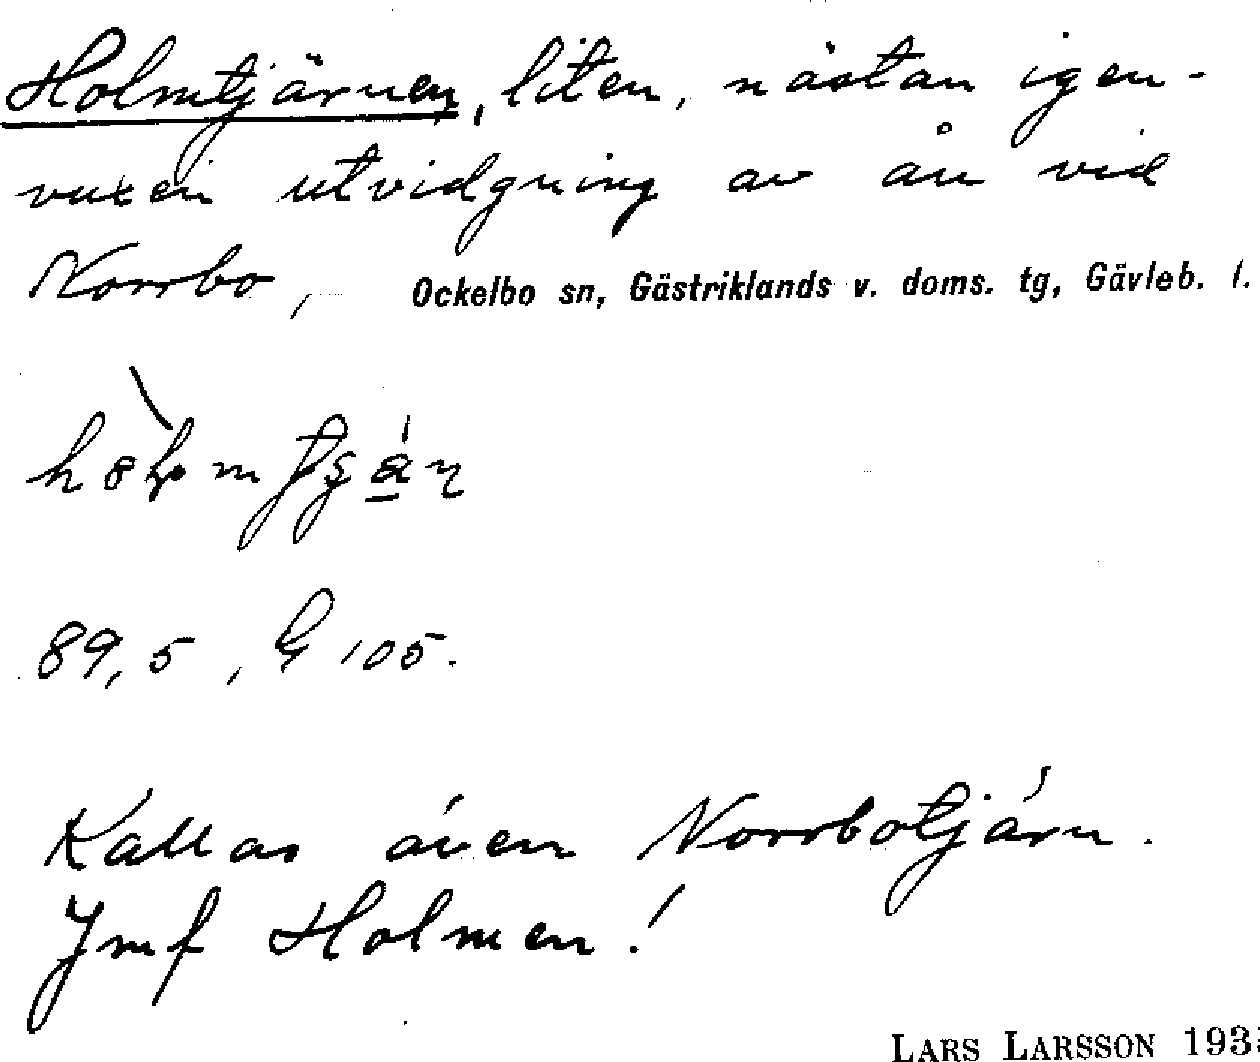 Holmtjärnen, liten, nästan igen-
vuxen utvidgning av ån vid
Norrbo, Ockelbo sn, Gästriklands v. doms. tg, Gävleb. l.
89,5, G 105.
Kallas även Norrbotjärn.
Jmf Holmen!
LARS LARSSON 193